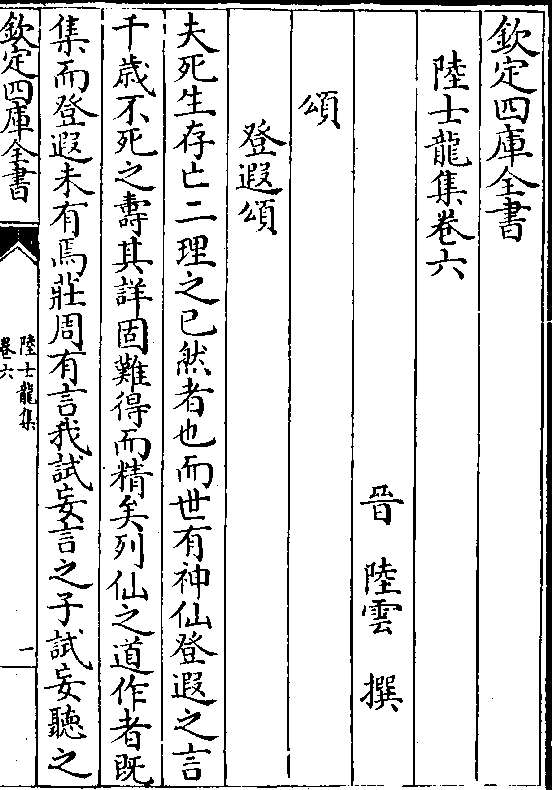 欽定四庫全書
陸士龍集卷六
晉 陸雲 撰
頌
登遐頌
夫死生存亡二理之已然者也而世有神仙登遐之言
千歲不死之壽其詳固難得而精矣列仙之道作者既
集而登遐未有焉莊周有言我試妄言之子試妄聽之
欽定四庫全書
陸士龍集
卷六
一